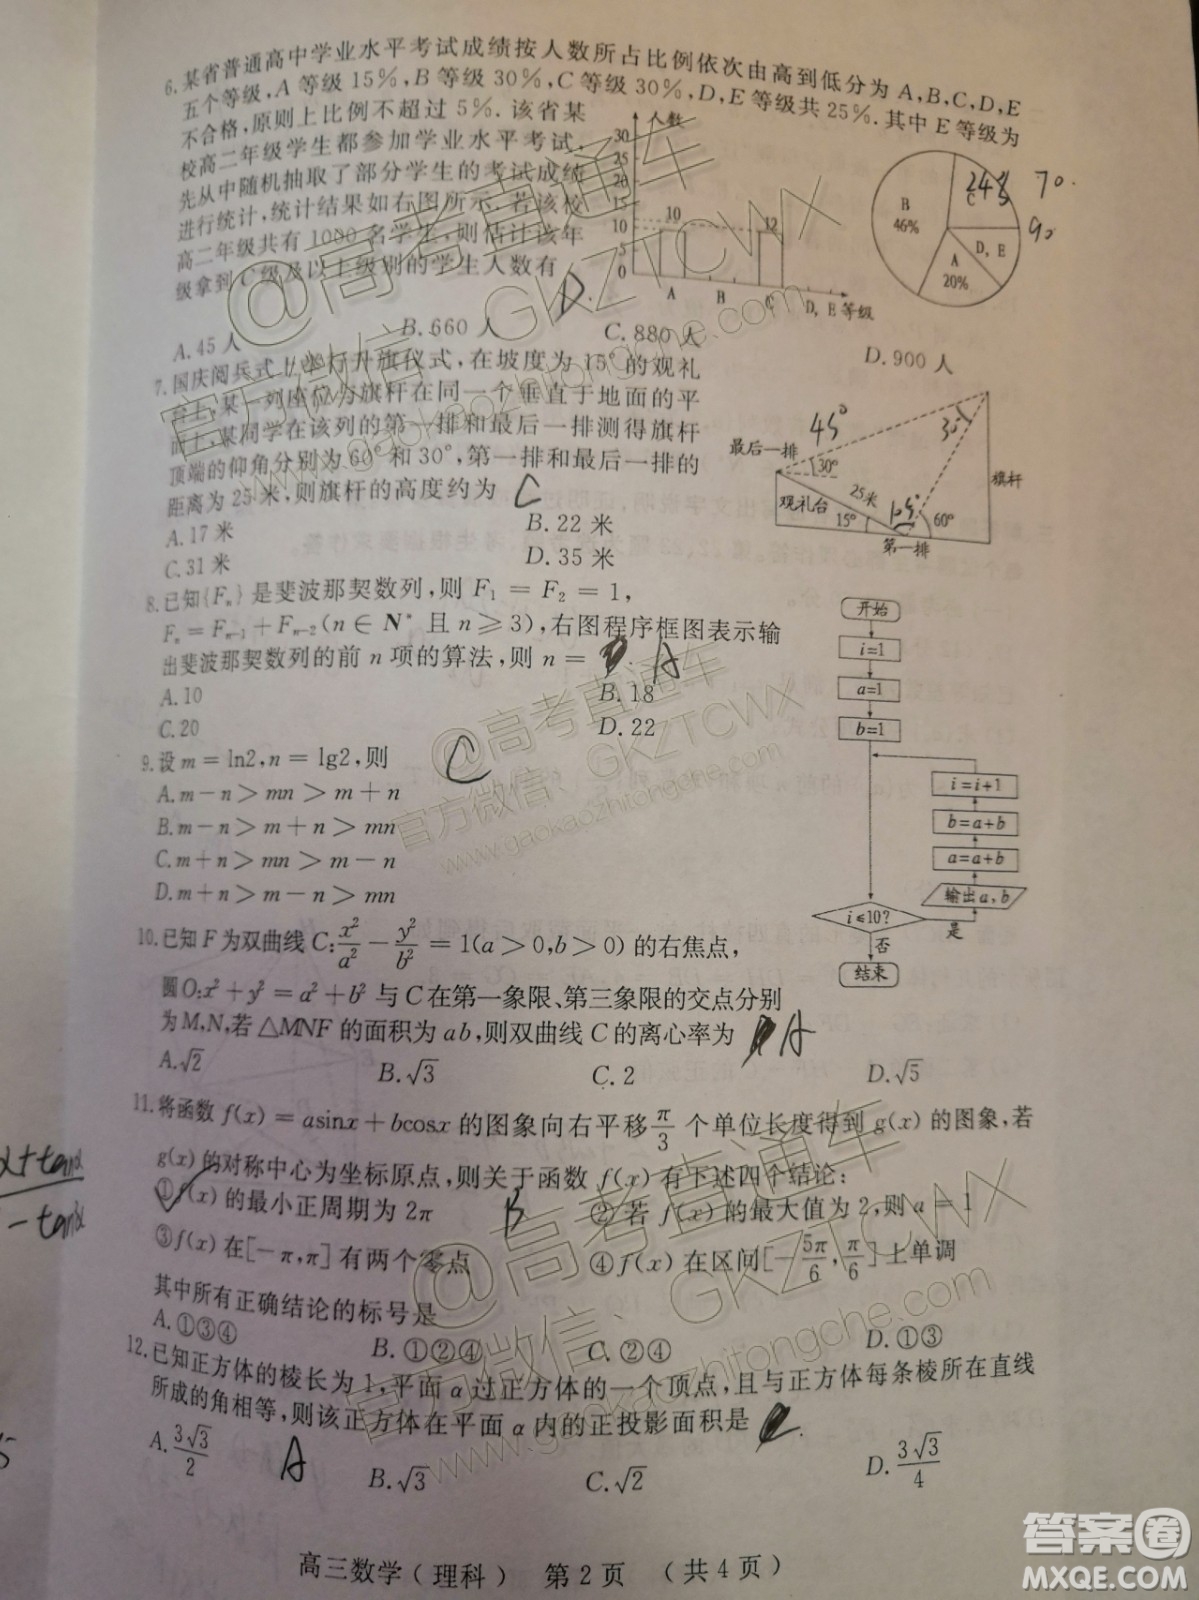 6.某省普通高中学业水平考试成绩按人数所占比例依次由高到低分为A,B,C,D,E
五个等级,A等级15%,B等级30%,C等级30%,D,E等级共25%.其中E等级为
不合格,原则上比例不超过5%.该省某
校高二年级学生都参加学业水平考试,
先从中随机抽取了部分学生的考试成绩
进行统计,统计结果如右图所示.若该校
高二年级共有1000名学生,则估计该年
级拿到C级及以上级别的学生人数有
D.
人数
30
25
20
15
10
5
0
10
12
A
B
C
D, E 等级
B
46%
C
24%
D, E
A
20%
70.
90
A.45人
B.660人
C.880人
D.900人
7.国庆阅兵式上举行升旗仪式,在坡度为15°的观礼
台上,某一列座位与旗杆在同一个垂直于地面的平
面上,某同学在该列的第一排和最后一排测得旗杆
顶端的仰角分别为60°和30°,第一排和最后一排的
距离为25米,则旗杆的高度约为
C
A.17米
B.22米
C.31米
D.35米
最后一排
45°
30°
30°
旗杆
25米
观礼台
15°
105°
60°
第一排
8.已知{Fₙ}是斐波那契数列,则F₁=F₂=1,
Fₙ=Fₙ₋₁+Fₙ₋₂(n∈N*且n⩾3),右图程序框图表示输
出斐波那契数列的前n项的算法,则n=
A
A.10
B.18
C.20
D.22
开始
i=1
a=1
b=1
i=i+1
b=a+b
a=a+b
输出a,b
i≤10?
是
否
结束
9.设m=ln2,n=lg2,则
C
A.m-n>mn>m+n
B.m-n>m+n>mn
C.m+n>mn>m-n
D.m+n>m-n>mn
10.已知F为双曲线C:x²/a²-y²/b²=1(a>0,b>0)的右焦点,
圆O:x²+y²=a²+b²与C在第一象限、第三象限的交点分别
为M,N,若△MNF的面积为ab,则双曲线C的离心率为
A
A.√2
B.√3
C.2
D.√5
11.将函数f(x)=asinx+bcosx的图象向右平移π/3个单位长度得到g(x)的图象,若
g(x)的对称中心为坐标原点,则关于函数f(x)有下述四个结论:
①f(x)的最小正周期为2π
B
②若f(x)的最大值为2,则a=1
③f(x)在[-π,π]有两个零点
④f(x)在区间[-5π/6,π/6]上单调
其中所有正确结论的标号是
A.①③④
B.①②④
C.②④
D.①③
12.已知正方体的棱长为1,平面α过正方体的一个顶点,且与正方体每条棱所在直线
所成的角相等,则该正方体在平面α内的正投影面积是
A.3√3/2
A
B.√3
C.√2
D.3√3/4
高三数学(理科) 第2页 (共4页)
@高考直通车
官方微信:GKZTCWX
www.gaokaozhitongche.com
@高考直通车
官方微信:GKZTCWX
www.gaokaozhitongche.com
@高考直通车
官方微信:GKZTCWX
www.gaokaozhitongche.com
答案圈
MXQE.COM